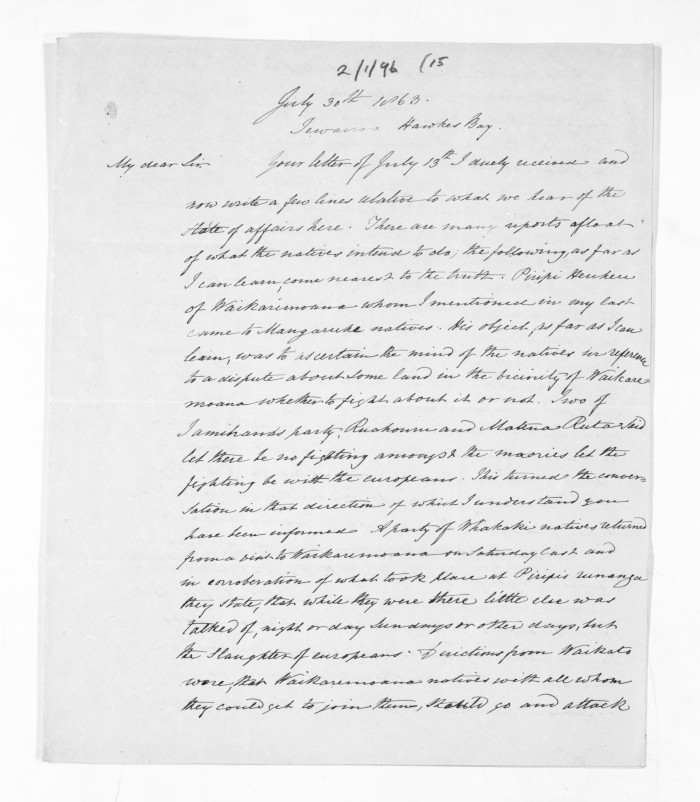 2/1/96 (15
July 30th 1863.
Hawkes Bay.
My dear Sir Your letter of July 13th I duely received and
now write a few lines relative to what we hear of the
state of affairs here. There are many reports afloat
of what the natives intend to do; the following, as far as
I can learn, come nearest to the truth. Piripi
of Waikaremoana whom I mentioned in my last
came to Mangaruhe natives. His object, as far as I can
learn, was to ascertain the mind of the natives in reference
to a dispute about some land in the vicinity of Waikare
moana whether to fight about it or not. Two of
Tamihanas party, and Matena Ruta said
let there be no fighting amongst the maories let the
fighting be with the europeans. This turned the conver-
sation in that direction of which I understand you
have been informed A party of Whakaki natives returned
from a visit to Waikaremoana on Saturday last and
in corroberation of what took place at Piripis runanga
they state, that while they were there little else was
talked of, night or day Sundays or other days, but
the slaughter of europeans. Directions from Waikato
were, that Waikaremoana natives with all whom
they could get to join them, should go and attack